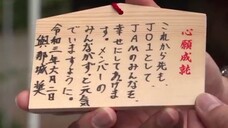 心願成就
これから先も、
JO1として
JAMのみんなを、
幸せにしてあげま
す。メンバーの
みんながずっと元気
でいますように。
令和三年六月二日
與那城 奨